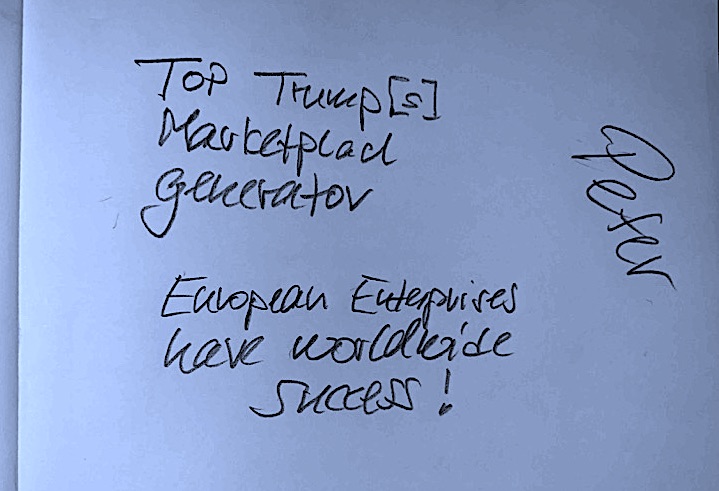 Top Trump[s]
Marketplace
Generator
European Enterprises
have worldwide
success!
Peter